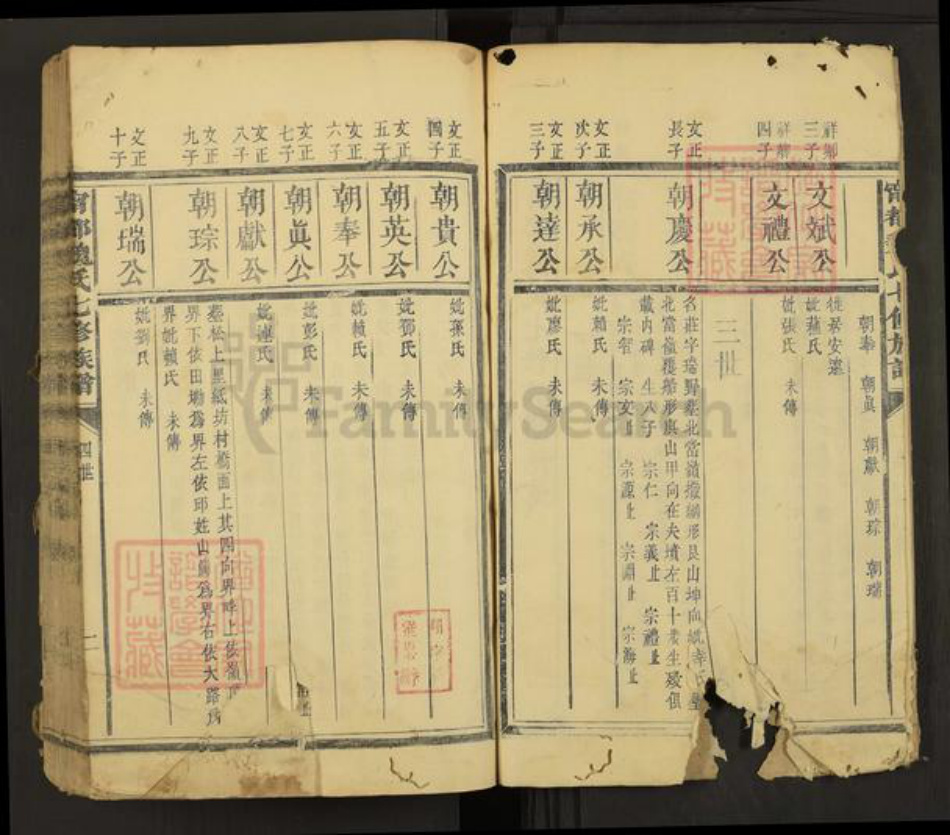 朝奉 朝眞 朝獻 朝琮 朝瑞
祥鄉
三子
文斌公
徙居安遠
妣蕭氏
四子
文禮公
妣張氏 未傳
三世
文正
長子
朝慶公
名莊字瑞野葬北當嶺撥網形艮山坤向妣幸氏
北當嶺覆船形庚山甲向在夫墳左百十步生歿俱
載內碑 生八子 宗仁 宗義止 宗禮止
宗智 宗文止 宗源止 宗淵止 宗海止
文正
次子
朝承公
妣賴氏 未傳
文正
三子
朝達公
妣廖氏 未傳
文正
四子
朝貴公
妣孫氏
文正
五子
朝英公
妣鄧氏 未傳
文正
六子
朝奉公
妣賴氏 未傳
文正
七子
朝眞公
妣彭氏 未傳
文正
八子
朝獻公
妣連氏 未傳
文正
九子
朝琮公
葬松上里紙坊村橋面上其四向界畔上依嶺
界下依田塝為界左依邱姓山為界右依大路為
界妣賴氏 未傳
文正
十子
朝瑞公
妣劉氏 未傳
甯都魏氏七修族譜
四世
FamilySearch